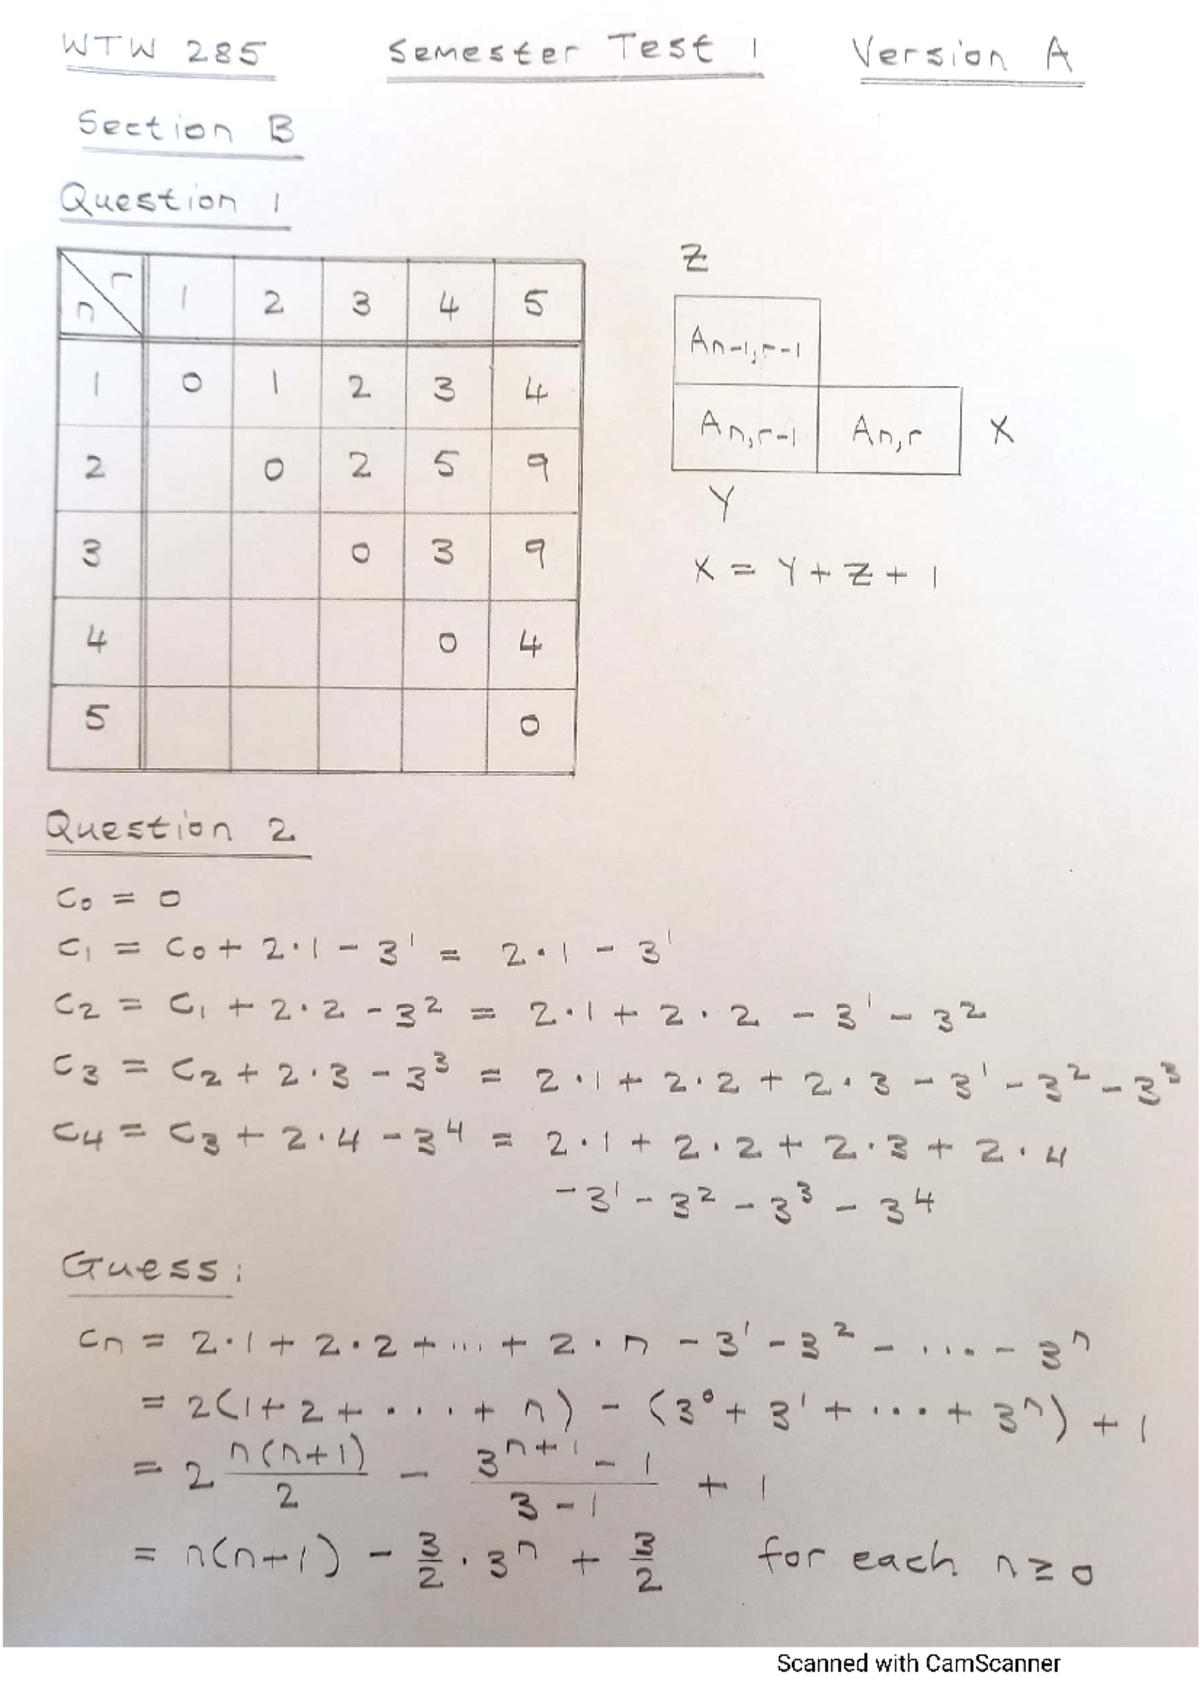 WTW 285 Semester Test 1 Version A
Section B
Question 1
n r 1 2 3 4 5
1 0 1 2 3 4
2 0 2 5 9
3 0 3 9
4 0 4
5 0
Z
An-1,r-1
An,r-1 An,r X
Y
X = Y + Z + 1
Question 2
c₀ = 0
c₁ = c₀ + 2·1 - 3¹ = 2·1 - 3¹
c₂ = c₁ + 2·2 - 3² = 2·1 + 2·2 - 3¹ - 3²
c₃ = c₂ + 2·3 - 3³ = 2·1 + 2·2 + 2·3 - 3¹ - 3² - 3³
c₄ = c₃ + 2·4 - 3⁴ = 2·1 + 2·2 + 2·3 + 2·4
- 3¹ - 3² - 3³ - 3⁴
Guess:
cn = 2·1 + 2·2 + ... + 2·n - 3¹ - 3² - ... - 3ⁿ
= 2(1 + 2 + ... + n) - (3⁰ + 3¹ + ... + 3ⁿ) + 1
= 2 n(n+1)/2 - (3ⁿ⁺¹ - 1)/(3 - 1) + 1
= n(n+1) - 3/2 · 3ⁿ + 3/2 for each n ≥ 0
Scanned with CamScanner